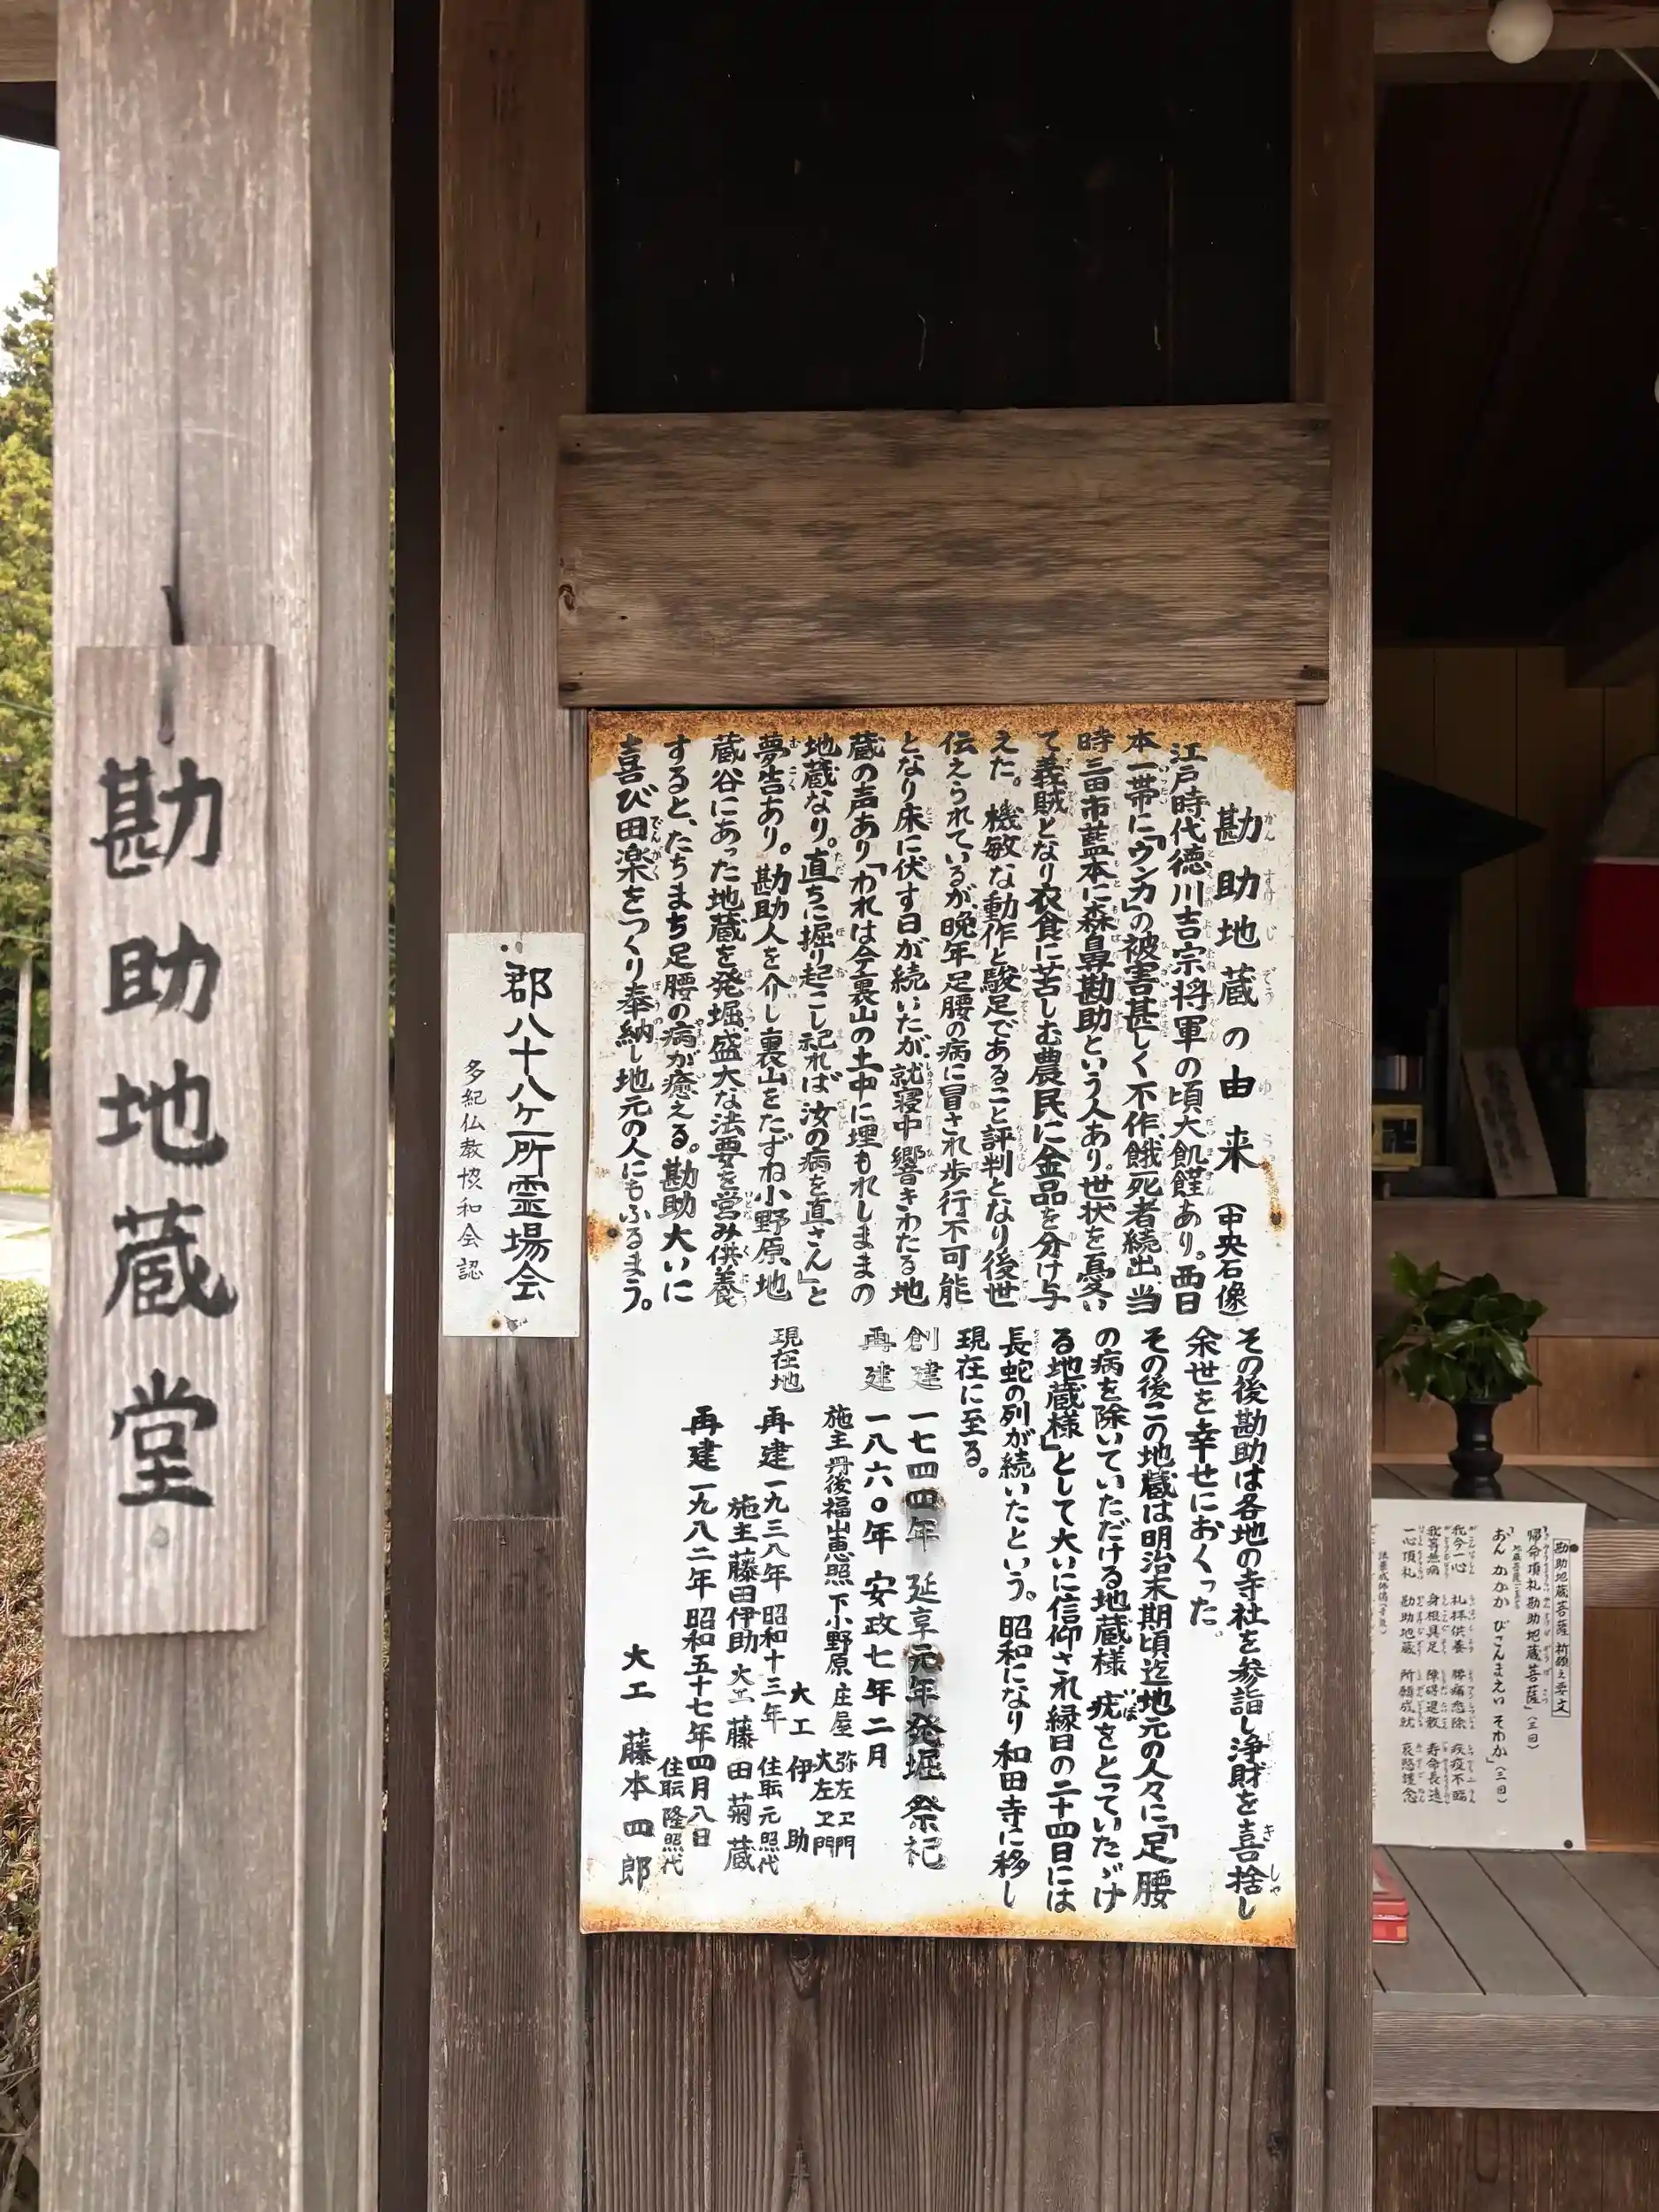 勘助地蔵堂
郡八十八ヶ所霊場会
多紀仏教協和会認
勘助地蔵の由来 (中央石像)
江戸時代徳川吉宗将軍の頃大飢饉あり。西日
本一帯に「ウンカ」の被害甚しく不作餓死者続出、当
時三田市藍本に森鼻勘助という人あり。世状を憂い
て義賊となり衣食に苦しむ農民に金品を分け与
えた。機敏な動作と駿足であること評判となり後世
伝えられているが、晩年足腰の病に冒され歩行不可能
となり床に伏す日が続いたが、就寝中響きわたる地
蔵の声あり「われは今裏山の土中に埋もれしままの
地蔵なり。直ちに掘り起こし祀れば汝の病を直さん」と
夢告あり。勘助人を介し裏山をたずね小野原地
蔵谷にあった地蔵を発掘、盛大な法要を営み供養
すると、たちまち足腰の病が癒える。勘助大いに
喜び田楽をつくり奉納し地元の人にもふるまう。
その後勘助は各地の寺社を参詣し浄財を喜捨し
余世を幸せにおくった。
その後この地蔵は明治末期頃迄地元の人々に「足腰
の病を除いていただける地蔵様 疣をとっていたゞけ
る地蔵様」として大いに信仰され縁日の二十四日には
長蛇の列が続いたという。昭和になり和田寺に移し
現在に至る。
創建 一七四四年 延享元年発掘祭祀
再建 一八六〇年 安政七年二月
施主丹後福山恵照 下小野原 庄屋 弥左ヱ門
大左ヱ門
大工 伊助
現在地 再建 一九三八年 昭和十三年 住職元照代
施主藤田伊助 大工 藤田菊蔵
再建 一九八二年 昭和五十七年四月八日
住職隆照代
大工 藤本四郎
勘助地蔵菩薩祈願之要文
帰命頂礼勘助地蔵菩薩」(三回)
おん かかか びさんまえい そわか」(三回)
我今一心 礼拝供養 勝痛悉除 疾疫不臨
我等無病 身根具足 障碍退散 寿命長遠
一心頂礼 勘助地蔵 所願成就 哀愍護念